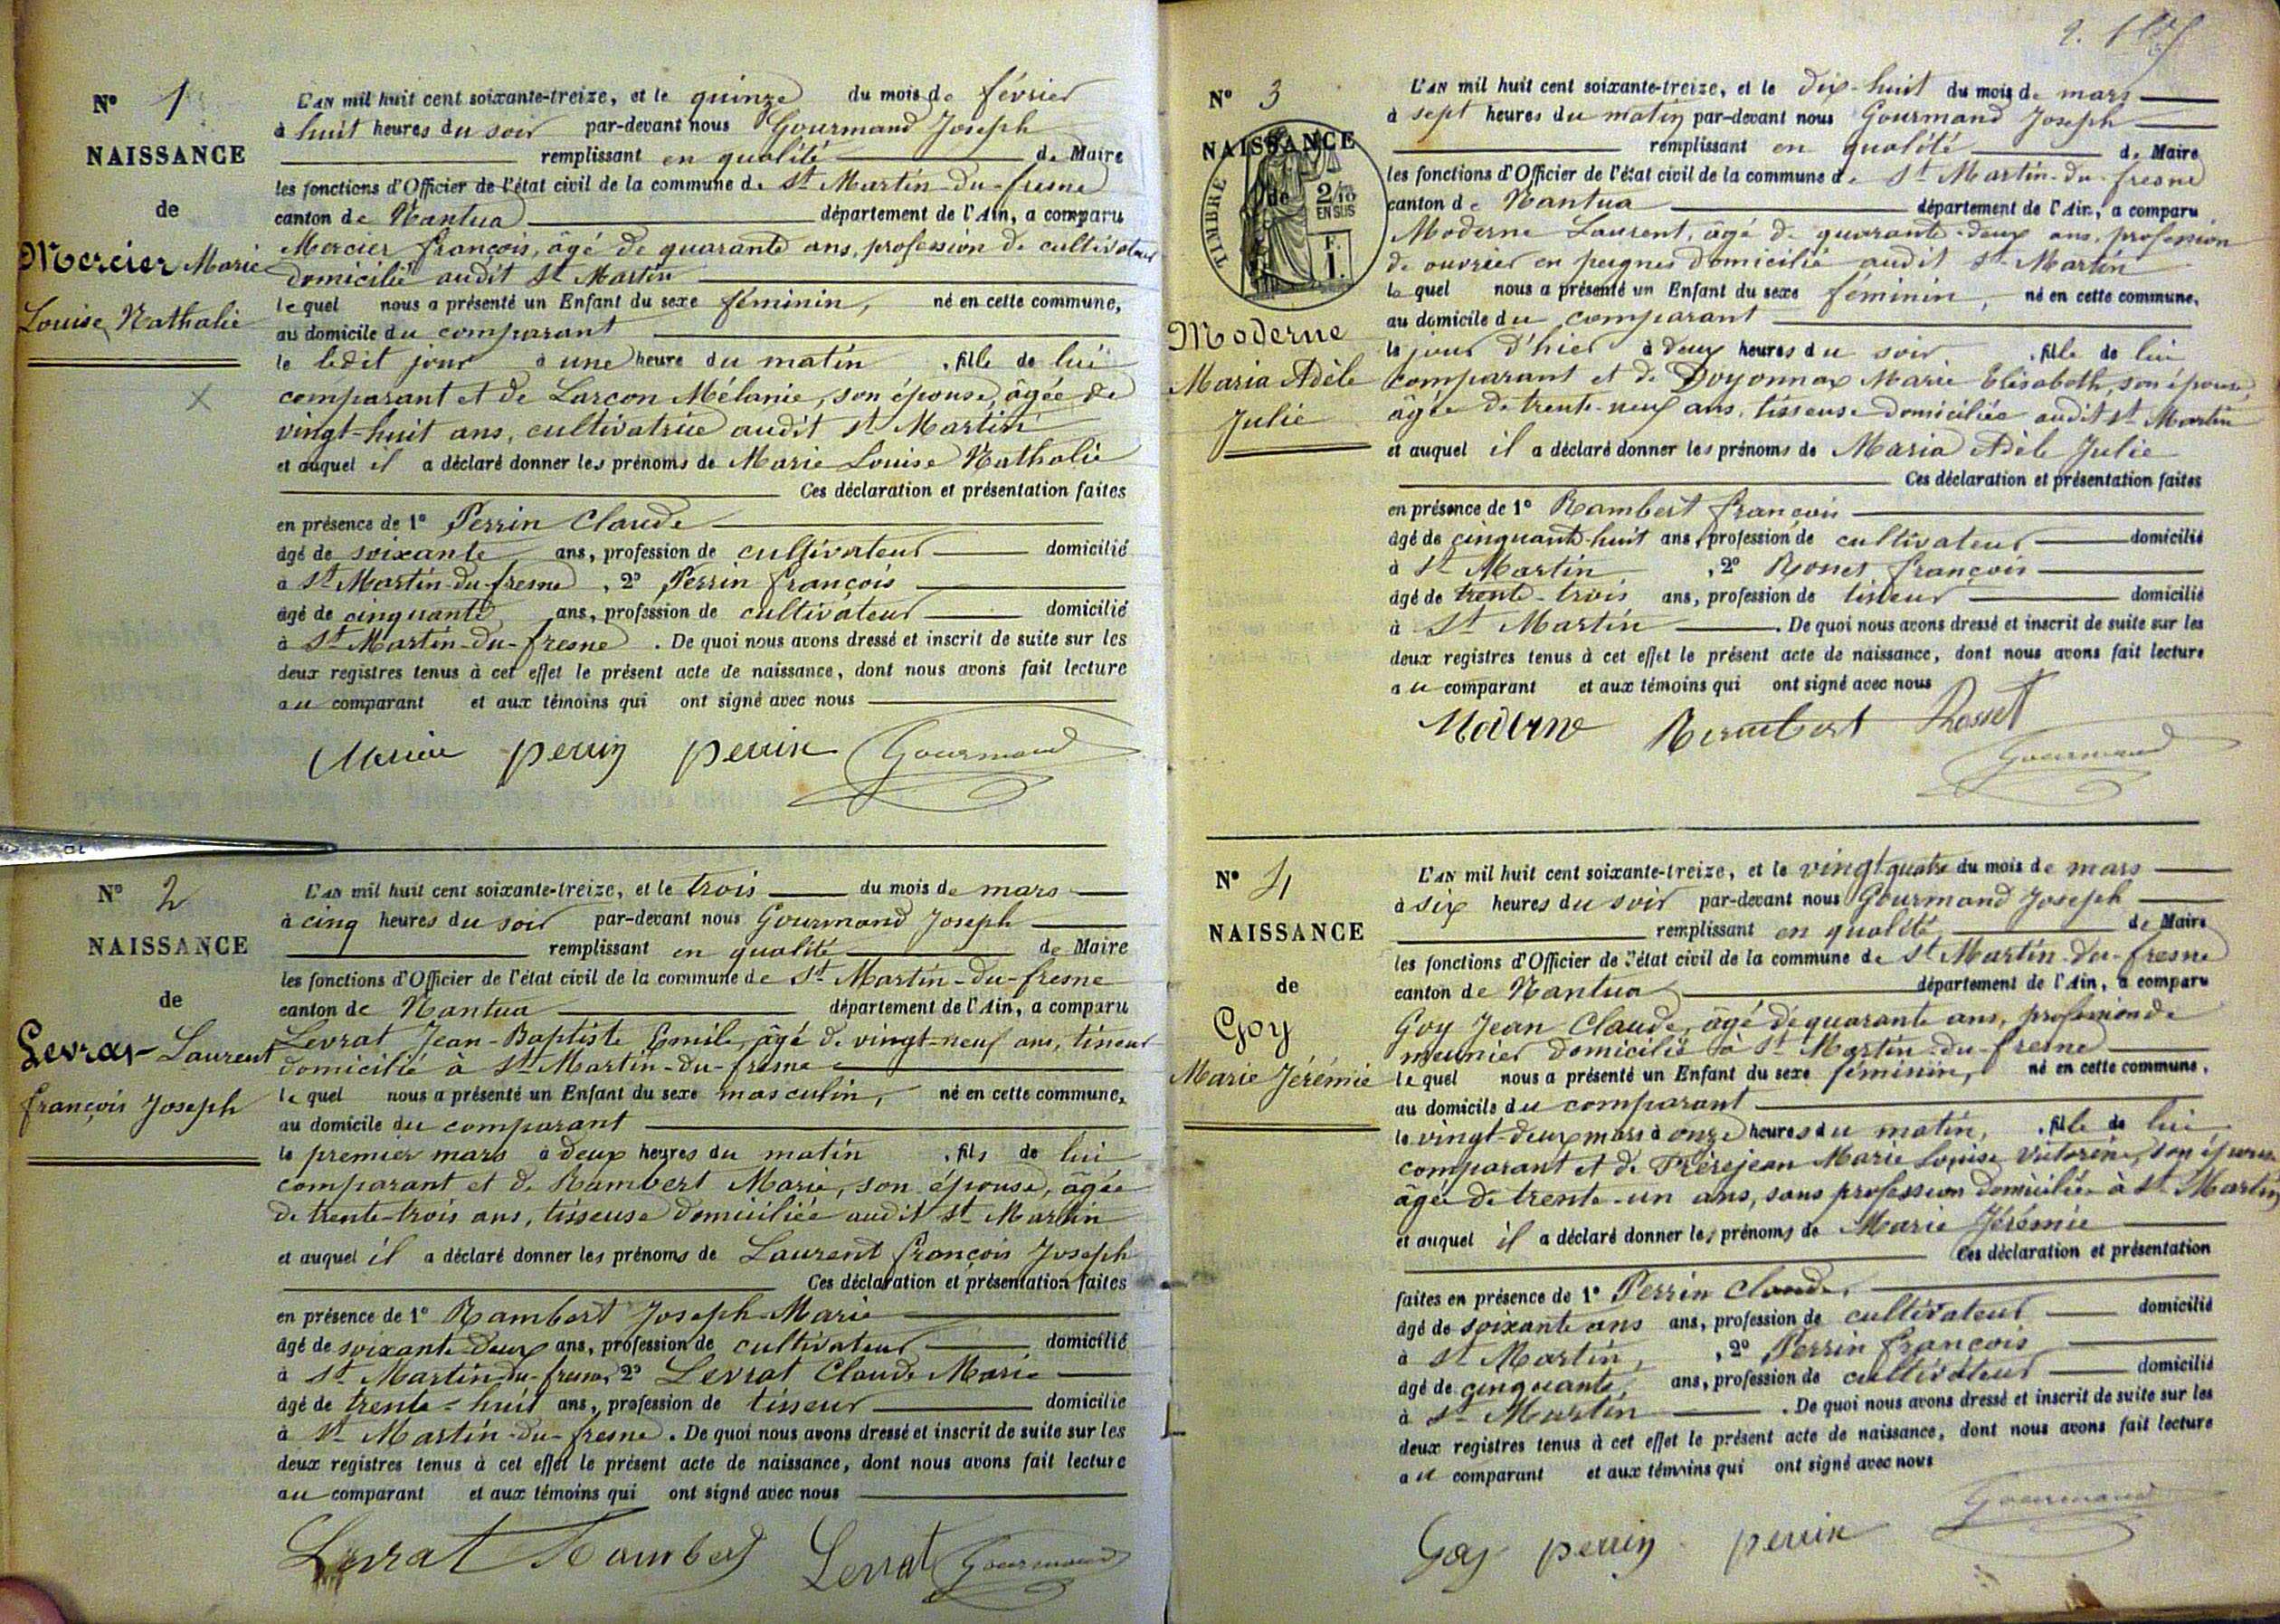 N° 1
NAISSANCE
de
Mercier Marie
Louise Nathalie
L'AN mil huit cent soixante-treize, et le quinze du mois de février
à huit heures du soir par-devant nous Gourmand Joseph
remplissant en qualité de Maire
les fonctions d'Officier de l'état civil de la commune de St Martin-du-fresne
canton de Nantua département de l'Ain, a comparu
Mercier françois, âgé de quarante ans, profession de cultivateur
domicilié audit St Martin
lequel nous a présenté un Enfant du sexe féminin, né en cette commune,
au domicile du comparant
le ledit jour à une heure du matin, fille de lui
comparant et de Larçon Mélanie, son épouse, âgée de
vingt-huit ans, cultivatrice audit St Martin
et auquel il a déclaré donner les prénoms de Marie Louise Nathalie
Ces déclaration et présentation faites
en présence de 1° Perrin Claude
âgé de soixante ans, profession de cultivateur domicilié
à St Martin-du-fresne, 2° Perrin françois
âgé de cinquante ans, profession de cultivateur domicilié
à St Martin-du-fresne. De quoi nous avons dressé et inscrit de suite sur les
deux registres tenus à cet effet le présent acte de naissance, dont nous avons fait lecture
au comparant et aux témoins qui ont signé avec nous
Mercier perrin perrin Gourmand
N° 2
NAISSANCE
de
Levrat Laurent
françois Joseph
L'AN mil huit cent soixante-treize, et le trois du mois de mars
à cinq heures du soir par-devant nous Gourmand Joseph
remplissant en qualité de Maire
les fonctions d'Officier de l'état civil de la commune de St Martin-du-fresne
canton de Nantua département de l'Ain, a comparu
Levrat Jean-Baptiste Emile, âgé de vingt-neuf ans, tisseur
domicilié à St Martin-du-fresne
lequel nous a présenté un Enfant du sexe masculin, né en cette commune,
au domicile du comparant
le premier mars à deux heures du matin, fils de lui
comparant et de Rambert Marie, son épouse, âgée
de trente-trois ans, tisseuse domiciliée audit St Martin
et auquel il a déclaré donner les prénoms de Laurent françois Joseph
Ces déclaration et présentation faites
en présence de 1° Rambert Joseph-Marie
âgé de soixante-deux ans, profession de cultivateur domicilié
à St Martin-du-fresne, 2° Levrat Claude Marie
âgé de trente-huit ans, profession de tisseur domicilié
à St Martin-du-fresne. De quoi nous avons dressé et inscrit de suite sur les
deux registres tenus à cet effet le présent acte de naissance, dont nous avons fait lecture
au comparant et aux témoins qui ont signé avec nous
Levrat Rambert Levrat Gourmand
N° 3
NAISSANCE
de
TIMBRE
2/10
EN SUS
F.
1.
Moderne
Maria Adèle
Julie
L'AN mil huit cent soixante-treize, et le dix-huit du mois de mars
à sept heures du matin par-devant nous Gourmand Joseph
remplissant en qualité de Maire
les fonctions d'Officier de l'état civil de la commune de St Martin-du-fresne
canton de Nantua département de l'Ain, a comparu
Moderne Laurent, âgé de quarante-deux ans, profession
de ouvrier en peignes domicilié audit St Martin
lequel nous a présenté un Enfant du sexe féminin, né en cette commune,
au domicile du comparant
le jour d'hier à deux heures du soir, fille de lui
comparant et de Doyonnax Marie Elisabeth, son épouse,
âgée de trente-neuf ans, tisseuse domiciliée audit St Martin
et auquel il a déclaré donner les prénoms de Maria Adèle Julie
Ces déclaration et présentation faites
en présence de 1° Rambert françois
âgé de cinquante-huit ans, profession de cultivateur domicilié
à St Martin, 2° Rosset françois
âgé de trente-trois ans, profession de tisseur domicilié
à St Martin. De quoi nous avons dressé et inscrit de suite sur les
deux registres tenus à cet effet le présent acte de naissance, dont nous avons fait lecture
au comparant et aux témoins qui ont signé avec nous
Moderne Rambert Rosset
Gourmand
N° 4
NAISSANCE
de
Goy
Marie Jérémie
L'AN mil huit cent soixante-treize, et le vingt-quatre du mois de mars
à six heures du soir par-devant nous Gourmand Joseph
remplissant en qualité de Maire
les fonctions d'Officier de l'état civil de la commune de St Martin-du-fresne
canton de Nantua département de l'Ain, a comparu
Goy Jean Claude, âgé de quarante ans, profession de
meunier domicilié à St Martin-du-fresne
lequel nous a présenté un Enfant du sexe féminin, né en cette commune,
au domicile du comparant
le vingt-deux mars à onze heures du matin, fille de lui
comparant et de Frèrejean Marie Louise Victorine, son épouse
âgée de trente-un ans, sans profession domiciliée à St Martin
et auquel il a déclaré donner les prénoms de Marie Jérémie
Ces déclaration et présentation
faites en présence de 1° Perrin Claude,
âgé de soixante ans ans, profession de cultivateur domicilié
à St Martin, 2° Perrin françois
âgé de cinquante, ans, profession de cultivateur domicilié
à St Martin. De quoi nous avons dressé et inscrit de suite sur les
deux registres tenus à cet effet le présent acte de naissance, dont nous avons fait lecture
au comparant et aux témoins qui ont signé avec nous
Goy perrin perrin Gourmand